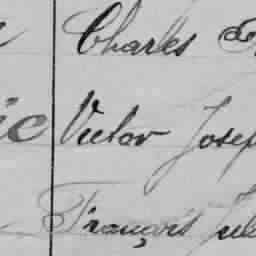 Charles
ic Victor Josep
François Jul